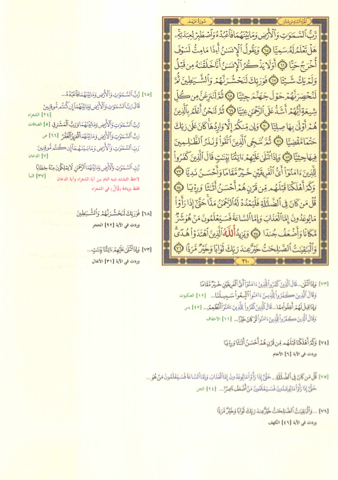 رَّبُّ ٱلسَّمَٰوَٰتِ وَٱلْأَرْضِ وَمَا بَيْنَهُمَا فَٱعْبُدْهُ وَٱصْطَبِرْ لِعِبَٰدَتِهِۦ
هَلْ تَعْلَمُ لَهُۥ سَمِيًّا ۝ وَيَقُولُ ٱلْإِنسَٰنُ أَءِذَا مَا مِتُّ لَسَوْفَ
أُخْرَجُ حَيًّا ۝ أَوَلَا يَذْكُرُ ٱلْإِنسَٰنُ أَنَّا خَلَقْنَٰهُ مِن قَبْلُ
وَلَمْ يَكُ شَيْـًٔا ۝ فَوَرَبِّكَ لَنَحْشُرَنَّهُمْ وَٱلشَّيَٰطِينَ ثُمَّ
لَنُحْضِرَنَّهُمْ حَوْلَ جَهَنَّمَ جِثِيًّا ۝ ثُمَّ لَنَنزِعَنَّ مِن كُلِّ
شِيعَةٍ أَيُّهُمْ أَشَدُّ عَلَى ٱلرَّحْمَٰنِ عِتِيًّا ۝ ثُمَّ لَنَحْنُ أَعْلَمُ بِٱلَّذِينَ
هُمْ أَوْلَىٰ بِهَا صِلِيًّا ۝ وَإِن مِّنكُمْ إِلَّا وَارِدُهَا كَانَ عَلَىٰ رَبِّكَ
حَتْمًا مَّقْضِيًّا ۝ ثُمَّ نُنَجِّى ٱلَّذِينَ ٱتَّقَوا۟ وَّنَذَرُ ٱلظَّٰلِمِينَ
فِيهَا جِثِيًّا ۝ وَإِذَا تُتْلَىٰ عَلَيْهِمْ ءَايَٰتُنَا بَيِّنَٰتٍ قَالَ ٱلَّذِينَ كَفَرُوا۟
لِلَّذِينَ ءَامَنُوٓا۟ أَىُّ ٱلْفَرِيقَيْنِ خَيْرٌ مَّقَامًا وَأَحْسَنُ نَدِيًّا ۝
وَكَمْ أَهْلَكْنَا قَبْلَهُم مِّن قَرْنٍ هُمْ أَحْسَنُ أَثَٰثًا وَرِءْيًا ۝
قُلْ مَن كَانَ فِى ٱلضَّلَٰلَةِ فَلْيَمْدُدْ لَهُ ٱلرَّحْمَٰنُ مَدًّا حَتَّىٰٓ إِذَا رَأَوْا۟
مَا يُوعَدُونَ إِمَّا ٱلْعَذَابَ وَإِمَّا ٱلسَّاعَةَ فَسَيَعْلَمُونَ مَنْ هُوَ شَرٌّ
مَّكَانًا وَأَضْعَفُ جُندًا ۝ وَيَزِيدُ ٱللَّهُ ٱلَّذِينَ ٱهْتَدَوْا۟ هُدًى
وَٱلْبَٰقِيَٰتُ ٱلصَّٰلِحَٰتُ خَيْرٌ عِندَ رَبِّكَ ثَوَابًا وَخَيْرٌ مَّرَدًّا ۝
٣١٠
[٦٥] رَّبُّ ٱلسَّمَٰوَٰتِ وَٱلْأَرْضِ وَمَا بَيْنَهُمَا فَٱعْبُدْهُ...
قَالَ رَبُّ ٱلسَّمَٰوَٰتِ وَٱلْأَرْضِ وَمَا بَيْنَهُمَآ إِن كُنتُم مُّوقِنِينَ
[٢٤] الشعراء
رَّبُّ ٱلسَّمَٰوَٰتِ وَٱلْأَرْضِ وَمَا بَيْنَهُمَا وَرَبُّ ٱلْمَشَٰرِقِ [٥] الصافات
رَبُّ ٱلسَّمَٰوَٰتِ وَٱلْأَرْضِ وَمَا بَيْنَهُمَا ٱلْعَزِيزُ ٱلْغَفَّٰرُ [٦٦] ص
رَبِّ ٱلسَّمَٰوَٰتِ وَٱلْأَرْضِ وَمَا بَيْنَهُمَآ إِن كُنتُم مُّوقِنِينَ
[٧] الدخان
رَّبِّ ٱلسَّمَٰوَٰتِ وَٱلْأَرْضِ وَمَا بَيْنَهُمَا ٱلرَّحْمَٰنِ لَا يَمْلِكُونَ مِنْهُ خِطَابًا
[٣٧] النبأ
[٦٨] فَوَرَبِّكَ لَنَحْشُرَنَّهُمْ وَٱلشَّيَٰطِينَ
وردت في الآية [٩٢] الحجر
[٧٣] وَإِذَا تُتْلَىٰ عَلَيْهِمْ ءَايَٰتُنَا بَيِّنَٰتٍ...
وردت في الآية [٣١] الأنفال
[٧٣] وَإِذَا تُتْلَىٰ... قَالَ ٱلَّذِينَ كَفَرُوا۟ لِلَّذِينَ ءَامَنُوٓا۟ أَىُّ ٱلْفَرِيقَيْنِ خَيْرٌ مَّقَامًا
وَقَالَ ٱلَّذِينَ كَفَرُوا۟ لِلَّذِينَ ءَامَنُوا۟ ٱتَّبِعُوا۟ سَبِيلَنَا... [١٢] العنكبوت
وَإِذَا قِيلَ لَهُمْ أَنفِقُوا۟... قَالَ ٱلَّذِينَ كَفَرُوا۟ لِلَّذِينَ ءَامَنُوٓا۟ أَنُطْعِمُ... [٤٧] يس
وَقَالَ ٱلَّذِينَ كَفَرُوا۟ لِلَّذِينَ ءَامَنُوا۟ لَوْ كَانَ خَيْرًا... [١١] الأحقاف
[٧٤] وَكَمْ أَهْلَكْنَا قَبْلَهُم مِّن قَرْنٍ هُمْ أَحْسَنُ أَثَٰثًا وَرِءْيًا
وردت في الآية [٦] الأنعام
[٧٥] قُلْ مَن كَانَ فِى ٱلضَّلَٰلَةِ... حَتَّىٰٓ إِذَا رَأَوْا۟ مَا يُوعَدُونَ إِمَّا ٱلْعَذَابَ وَإِمَّا ٱلسَّاعَةَ فَسَيَعْلَمُونَ مَنْ هُوَ...
حَتَّىٰٓ إِذَا رَأَوْا۟ مَا يُوعَدُونَ فَسَيَعْلَمُونَ مَنْ أَضْعَفُ نَاصِرًا... [٢٤] الجن
[٧٦] ...وَٱلْبَٰقِيَٰتُ ٱلصَّٰلِحَٰتُ خَيْرٌ عِندَ رَبِّكَ ثَوَابًا وَخَيْرٌ مَّرَدًّا
وردت في الآية [٤٦] الكهف